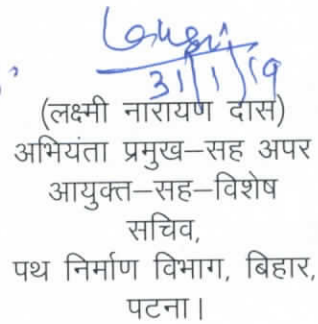 31/1/19
(लक्ष्मी नारायण दास)
अभियंता प्रमुख–सह अपर
आयुक्त–सह–विशेष
सचिव,
पथ निर्माण विभाग, बिहार,
पटना।